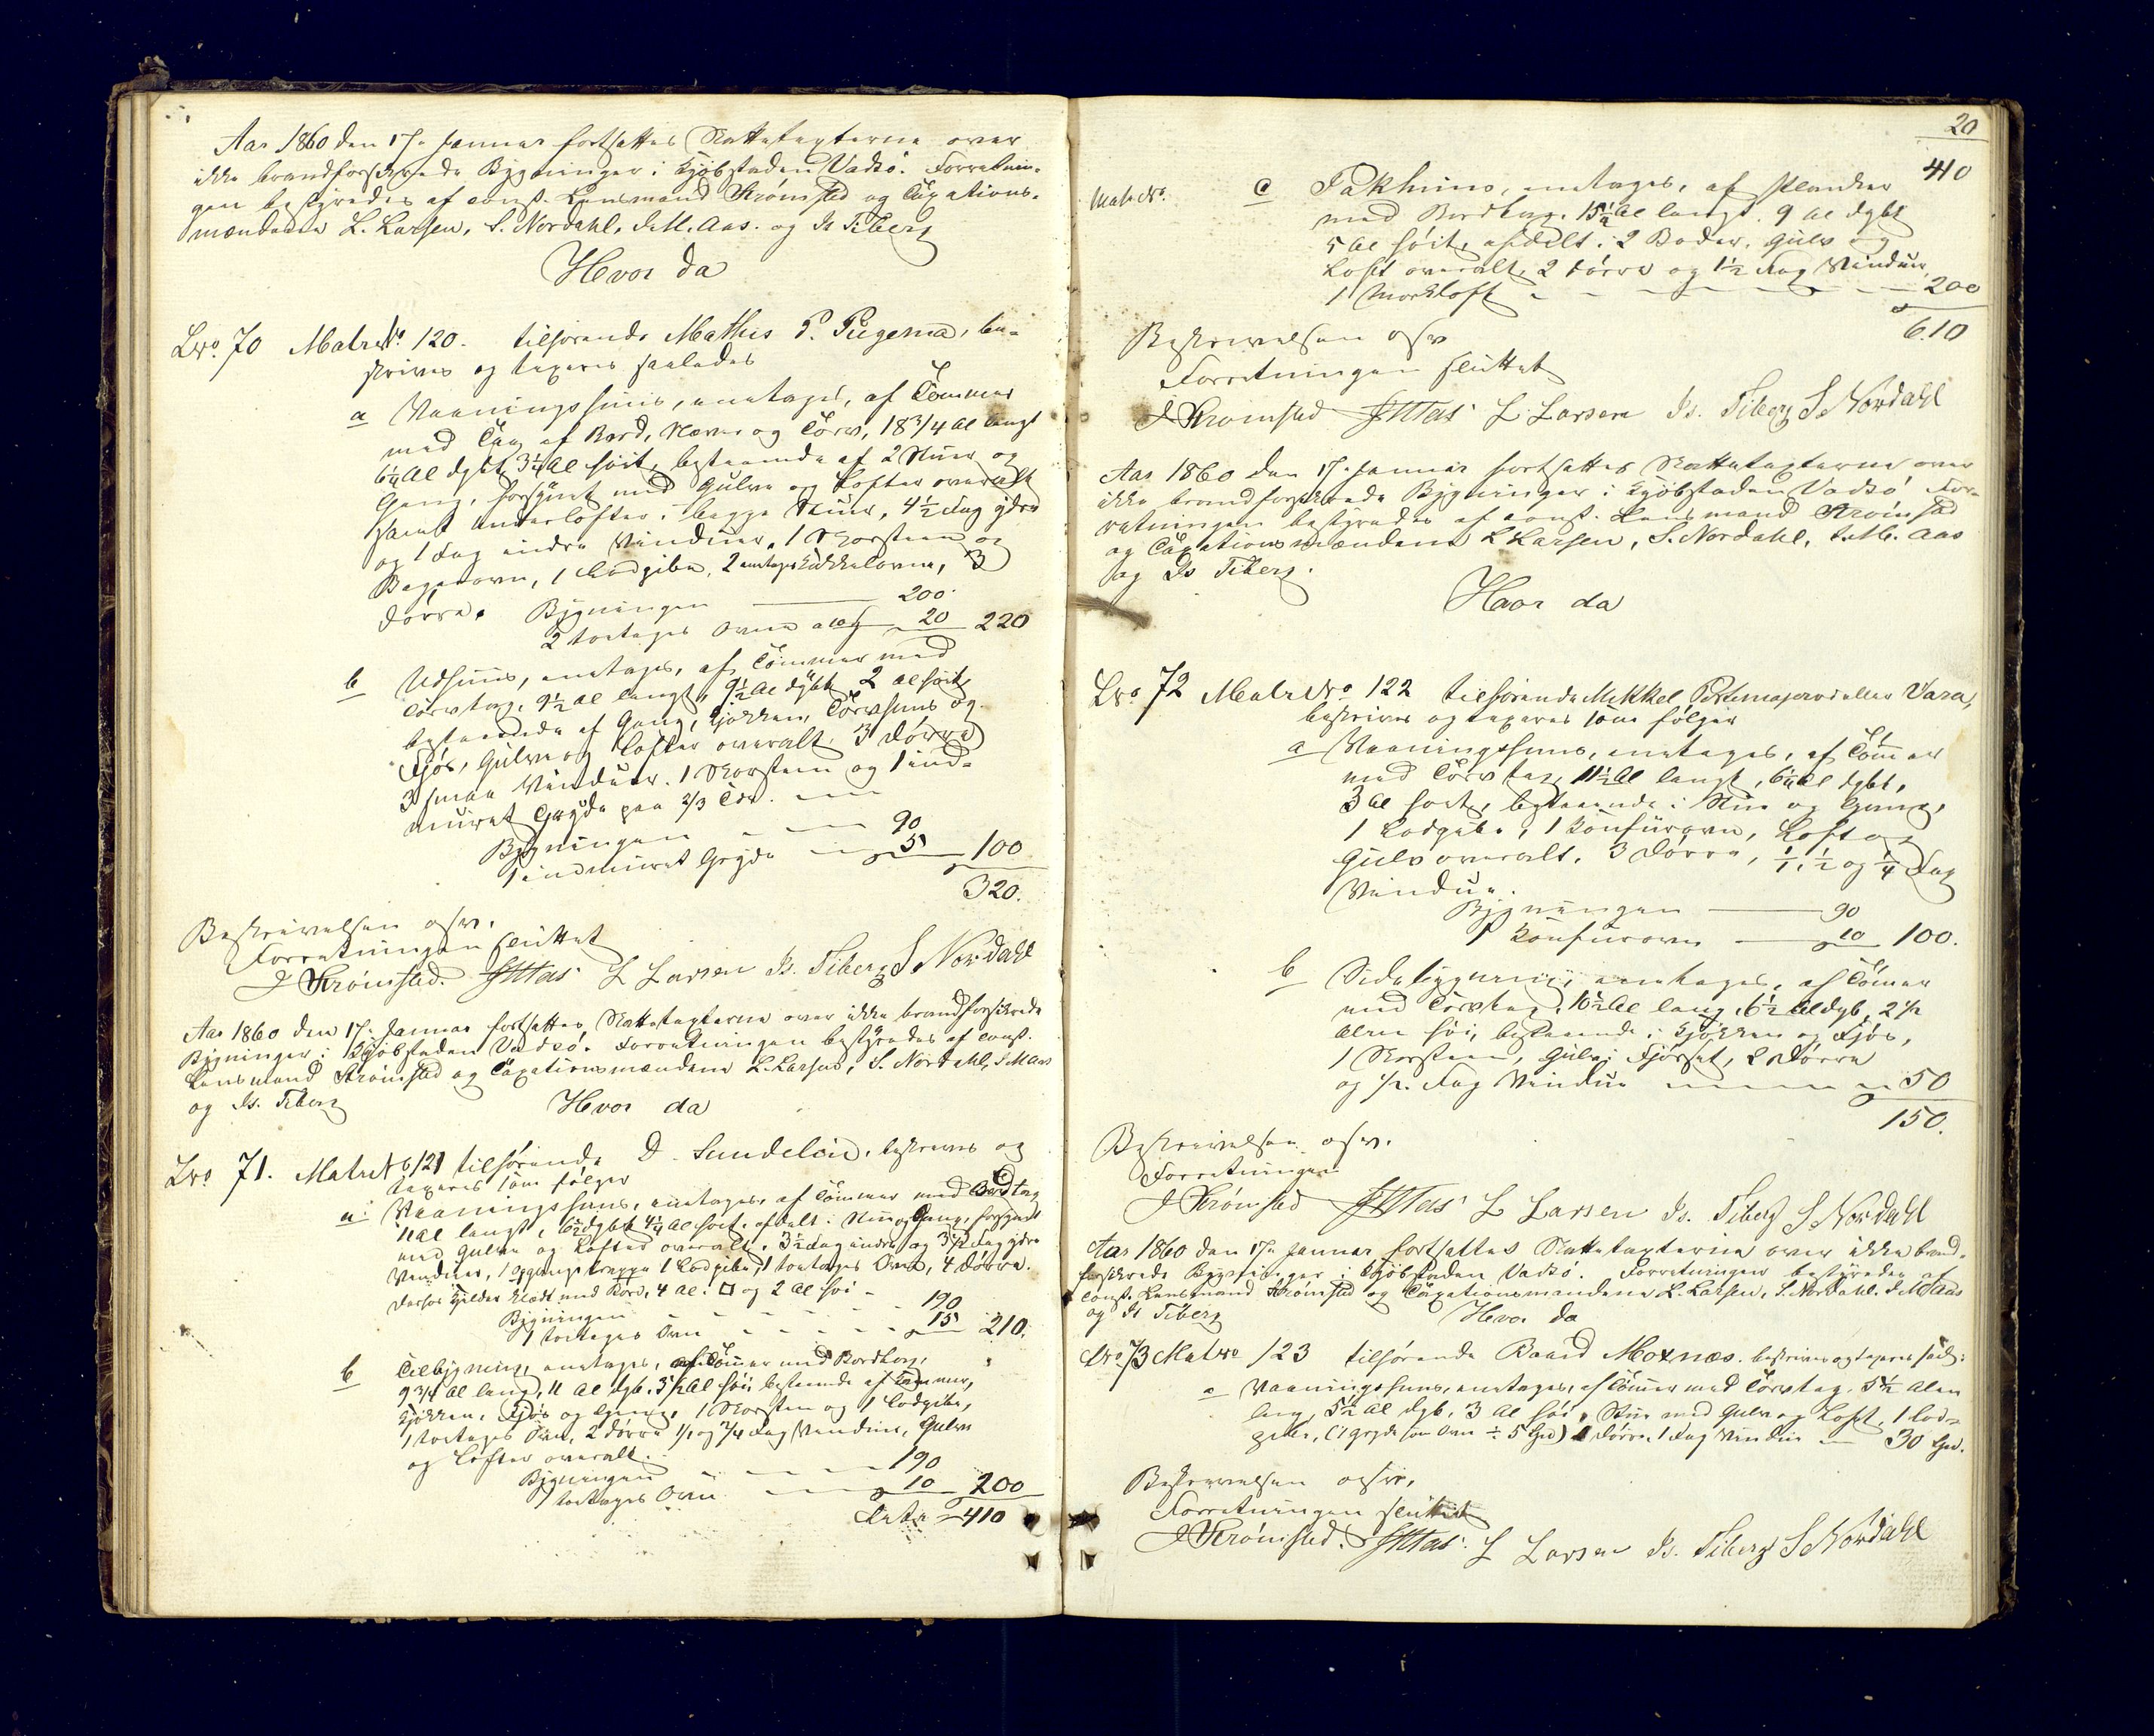 Aar 1860 den 17de Januar fortsattes Skattetaxterne over
ikke brandforsikrede Bygninger i Kjøbstaden Vadsö. Forretnin-
gen bestyredes af const. Lensmand Strömsted og Taxations-
mændene L. Larsen, S. Nordahl, J. M. Aas. og Is Tiberg
Hvor da
Lno. 70 Matr No. 120. tilhörende Mathis P. Piegema, be-
skrives og taxeres saaledes
a Vaaningshuus, eenetages, af Tömmer
med Tag af Bord, Næver og Törv, 18 3/4 Al langt
6 1/4 Al dybt, 3 1/4 Al höit, bestaaende af 2 Stuer og
Gang, forsynet med Gulve og Lofter overalt
samt Underlofter i begge Stuer, 4 1/2 Fag ydre
og 1 Fag indre Vinduer, 1 Skorsteen og
Bagerovn, 1 Lodpibe, 2 Kakkelovne, 3
Dörre. Bygningen — 200.
2 toetages Ovne — 20 220
b Udhuus, eenetages, af Tömmer med
Törvtag, 9 1/2 Al langt, 9 1/2 Al dybt 2 Al höit,
bestaaende af Gang, Kjökken, Törvhuus og
Fjös, Gulve og Lofter overalt, 3 Dörre
3 smaa Vinduer. 1 Skorsteen og 1 ind-
muret Gryde paa 2/3 Tde.
Bygningen — 90
1 indmuret Gryde — 5 100
320.
Beskrivelsen osv.
Forretningen sluttet
J Strömsted. JMAas L Larsen Is. Tiberg S Nordahl
Aar 1860 den 17de Januar fortsattes Skattetaxterne over ikke brandforsikrede
Bygninger i Kjøbstaden Vadsö. Forretningen bestyredes af const.
Lensmand Strömsted og Taxationsmændene L. Larsen, S. Nordahl, J M Aas
og Is. Tiberg
Hvor da
Lno 71. Matr No 121 tilhörende D. Sundelin, beskrives og
taxeres som fölger
a. Vaaningshuus, eenetages, af Tömmer med Bordtag
11 Al langt, 6 1/2 dybt 4 1/4 Al höit, afdelt i Stue og Gang, forsynet
med Gulve og Lofter overalt, 3 1/2 Fag indre og 3 1/2 Fag ydre
Vinduer, 1 Opgangstrappe 1 Lodpibe, 1 toetages Ovn, 4 Dörre.
Kjelder klædt med Bord, 4 Al. □ og 2 Al höi
Bygningen — 190
1 toetages Ovn — 15 210.
b Tilbygning, eenetages, af Tömmer med Bordtag,
9 3/4 Al lang, 11 Al dyb. 3 1/2 Al höi, bestaaende af Kammer,
Kjökken, Fjös og Gang, 1 Skorsteen og 1 Lodpibe,
1 toetages Ovn, 2 Dörre 1/1 og 3/4 Fag Vindue, Gulve
og Lofter overalt.
Bygningen — 190
1 toetages Ovn — 10 200
Latr — 410
20
410
Matr No.
c Pakhuus, eenetages, af Planker
med Bordtag. 15 1/2 Al langt. 9 Al dybt
5 Al höit, afdelt i 2 Boder. Gulv og
Loft overalt, 2 Dörre og 1 1/2 Fag Vindue,
1 Mörkloft — 200
610
Beskrivelsen osv
Forretningen sluttet
J Strömsted JMAas L Larsen Is. Tiberg S Nordahl
Aar 1860 den 17de Januar fortsattes Skattetaxterne over
ikke brandforsikrede Bygninger i Kjöbstaden Vadsö For-
retningen bestyredes af const. Lensmand Strömsted
og Taxationsmændene L Larsen, S. Nordahl, J. M. Aas
og Is Tiberg.
Hvor da
Lno 72 Matr No. 122 tilhörende Mikkel eller Vara,
beskrives og taxeres som fölger
a Vaaningshuus, eenetages, af Tömmer
med Törvtag, 11 1/2 Al langt, 6 1/4 Al dybt,
3 Al höit, bestaaende i Stue og Gang,
1 Lodpibe, 1 Komfurovn, Loft og
Gulv overalt. 3 Dörre, 1/1, 1/2 og 1/4 Fag
Vindue.
Bygningen — 90
1 Komfurovn — 10 100.
b Sidebygning, eenetages, af Tömmer
med Törvtag, 10 1/2 Al lang, 6 1/2 Al dyb, 2 1/2
Alen höi, bestaaende i Kjökken og Fjös,
1 Skorsteen, Gulv i Fjöset, 2 Dörre
og 1/2 Fag Vindue — 50
150.
Beskrivelsen osv.
Forretningen
J Strömsted JMAas L Larsen Is. Tiberg S Nordahl
Aar 1860 den 17de Januar fortsattes Skattetaxterne over ikke brand-
forsikrede Bygninger i Kjöbstaden Vadsö. Forretningen bestyredes af
const. Lensmand Strömsted og Taxationsmændene L. Larsen, S. Nordahl. J. M. Aas
og Is Tiberg
Hvor da
Lno 73 Matr No 123 tilhörende Baard Moxnæs. beskrives og taxeres saal:
a Vaaningshuus, eenetages, af Tömmer med Törvtag. 5 1/2 Alen
lang, 5 1/2 Al dyb, 3 Al höi, Stue med Gulv og Loft, 1 Lod-
pibe, (1 Gryde som Ovn ÷ 5 Spd) 1 Dörre. 1 Fag Vindue — 30 Spd.
Beskrivelsen osv.
Forretningen sluttet
J Strömsted. JMAas. L Larsen Is. Tiberg S Nordahl